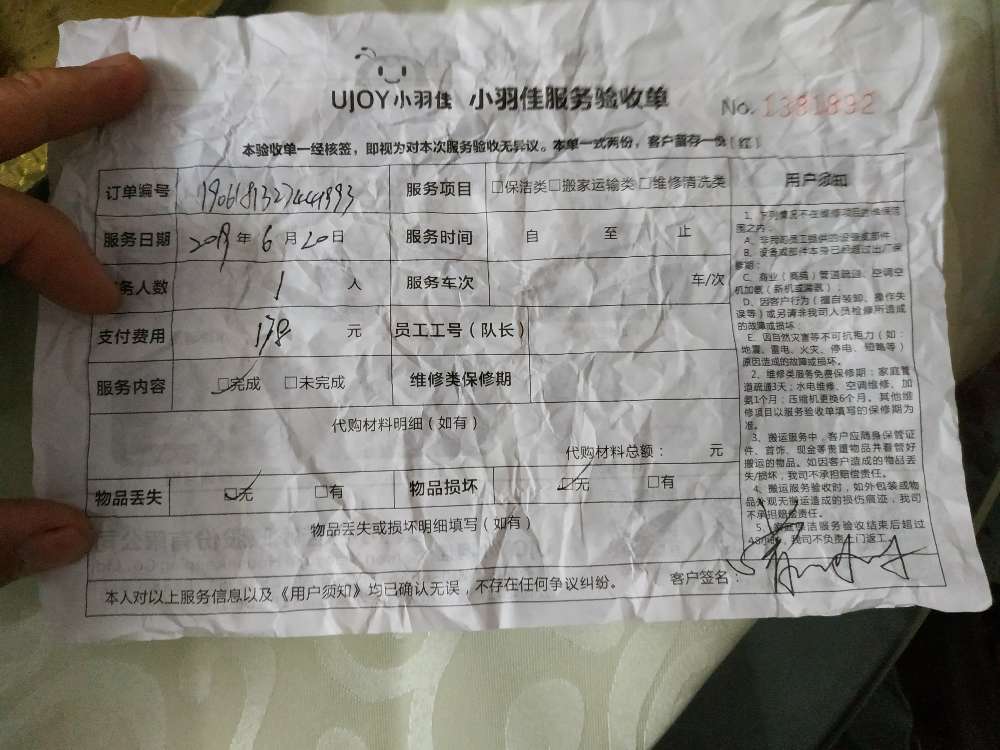 UJOY小羽佳 小羽佳服务验收单 No. 1381832
本验收单一经核签，即视为对本次服务验收无异议。本单一式两份，客户留存一份[红]
订单编号 服务项目 □保洁类□搬家运输类□维修清洗类
服务日期 2019年6月20日 服务时间 自 至 止
务人数 1 人 服务车次 车/次
支付费用 178 元 员工工号（队长）
服务内容 □完成 □未完成 维修类保修期
代购材料明细（如有）
代购材料总额： 元
物品丢失 □无 □有 物品损坏 □无 □有
物品丢失或损坏明细填写（如有）
本人对以上服务信息以及《用户须知》均已确认无误，不存在任何争议纠纷。 客户签名：
用户须知
1、下列情况不在维修项目质维保范
围之内：
A、非我司员工提供的设备或部件
B、设备或部件本身已经超过出厂保
修期；
C、商业（商铺）管道疏通、空调空
机加氨（新机或漏氨）；
D、因客户行为（擅自装卸、操作失
误等）或另请非我司人员检修所造成
的故障或损坏；
E、因自然灾害等不可抗拒力（如：
地震、雷电、火灾、停电、短路等）
原因造成的故障或损坏。
2、维修类服务免费保修期：家庭管
道疏通3天；水电维修、空调维修、加
氨1个月；压缩机更换6个月。其他维
修项目以服务验收单填写的保修期为
准。
3、搬运服务中，客户应随身保管证
件、首饰、现金等贵重物品并看管好
搬运的物品。如因客户造成的物品丢
失/损坏，我司不承担赔偿责任。
4、搬运服务验收时，如外包装或物
品外观无搬运造成的损伤痕迹，我司
不承担赔偿责任。
5、家庭保洁服务验收结束后超过
48小时，我司不负责上门返工。